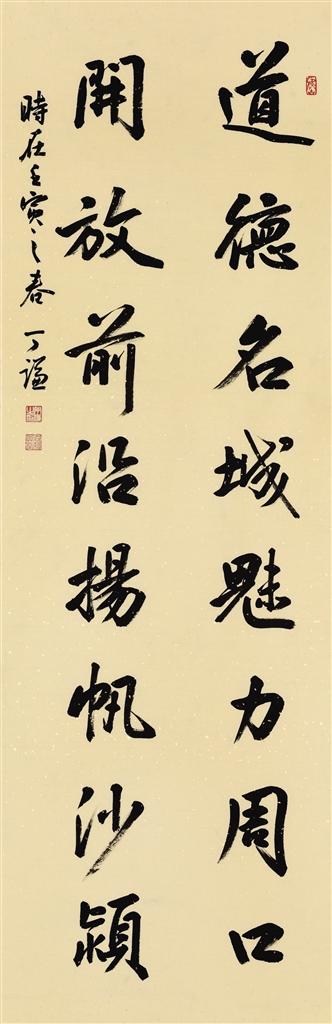 道德名城魅力周口
開放前沿揚帆沙潁
時在壬寅之春 丁謙